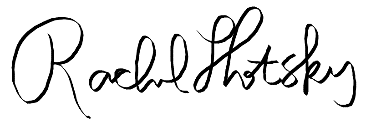 Rachel Shotsky